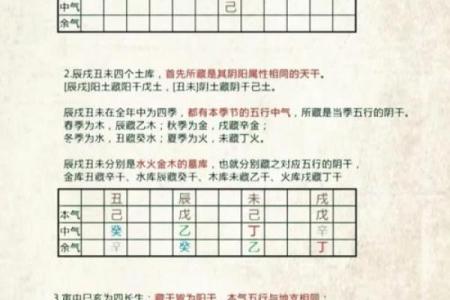 中气 己
余气
2.辰戌丑未四个土库，首先所藏是其阴阳属性相同的天干。
[辰戌]阳土藏阳干戊土，[丑未]阴土藏阴干己土。
辰戌丑未在全年中为四季，都有本季节的五行中气，所藏是当季五行的阴干。
春季为木，辰藏乙木；秋季为金，戌藏辛金；
冬季为水，丑藏癸水；夏季为火，未藏丁火。
辰戌丑未分别是水火金木的墓库，也就分别藏之对应五行的阴干，
金库丑藏辛干、水库辰藏癸干、木库未藏乙干、火库戌藏丁干
丑 辰 未 戌
本气 己 戊 己 戊
中气 癸 乙 丁 辛
余气 辛 癸 乙 丁
3.寅申巳亥为四长生：藏干皆为阳干，本气五行与地支相同：